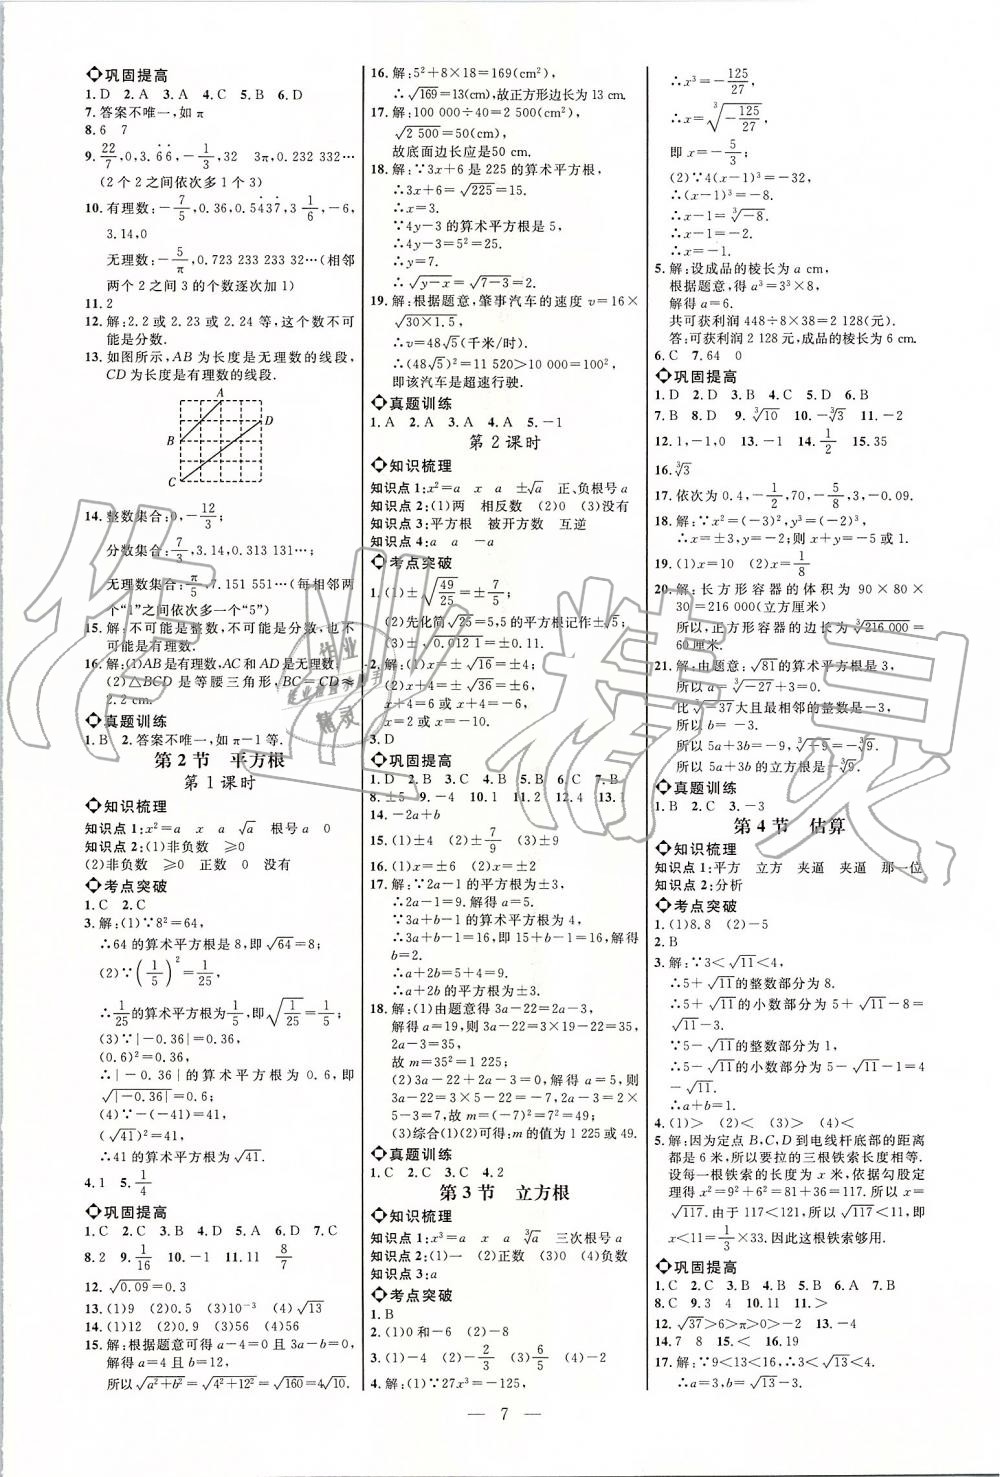 巩固提高
1. D　2. A　3. A　4. C　5. B　6. D
7. 答案不唯一,如 π
8. 6　7
9. 22/7,0,3.6̇6̇,-1/3,32　3π,0.232 332…
(2 个 2 之间依次多 1 个 3)
10. 有理数:-7/5,0.36,0.54̇37̇,3 1/6,-6,
3.14,0
无理数:-5/π,0.723 233 233 32…(相邻
两个 2 之间 3 的个数逐次加 1)
11. 2
12. 解:2.2 或 2.23 或 2.24 等,这个数不可
能是分数.
13. 如图所示,AB 为长度是无理数的线段,
CD 为长度是有理数的线段.
A
D
B
C
14. 整数集合:0,-12/3;
分数集合:7/3,3.14,0.313 131…;
无理数集合:π/5,7.151 551…(每相邻两
个“1”之间依次多一个“5”)
15. 解:不可能是整数,不可能是分数,也不
可能是有理数.
16. 解:(1)AB 是有理数,AC 和 AD 是无理数.
(2)△BCD 是等腰三角形,BC=DC≈
2.2 cm.
真题训练
1. B　2. 答案不唯一,如 π-1 等.
第 2 节　平方根
第 1 课时
知识梳理
知识点 1:x²=a　x　a　√a　根号 a　0
知识点 2:(1)非负数　≥0
(2)非负数　≥0　正数　0　没有
考点突破
1. C　2. C
3. 解:(1)∵8²=64,
∴64 的算术平方根是 8,即√64=8;
(2)∵(1/5)²=1/25,
∴1/25的算术平方根为1/5,即√(1/25)=1/5;
(3)∵|-0.36|=0.36,
(0.6)²=0.36,
∴|-0.36|的算术平方根为 0.6,即
√|-0.36|=0.6;
(4)∵-(-41)=41,
(√41)²=41,
∴41 的算术平方根为√41.
4. 1　5. 1/4
巩固提高
1. C　2. C　3. B　4. D　5. A　6. D　7. C
8. 2　9. 1/16　10. -1　11. 11　8/7
12. √0.09=0.3
13. (1)9　(2)0.5　(3)10⁻³　(4)√13
14. (1)12　(2)0.9　(3)56　(4)56
15. 解:根据题意可得 a-4=0 且 b-12=0,
解得 a=4 且 b=12,
所以√(a²+b²)=√(4²+12²)=√160=4√10.
16. 解:5²+8×18=169(cm²)
∴√169=13(cm),故正方形边长为 13 cm.
17. 解:100 000÷40=2 500(cm²),
√2 500=50(cm),
故底面边长应是50 cm.
18. 解:∵3x+6 是 225 的算术平方根,
∴3x+6=√225=15.
∴x=3.
∵4y-3 的算术平方根是 5,
∴4y-3=5²=25.
∴y=7.
∴√(y-x)=√(7-3)=2.
19. 解:根据题意,肇事汽车的速度 v=16×
√(30×1.5),
∴v=48√5(千米/时).
∴(48√5)²=11 520>10 000=100²,
即该汽车是超速行驶.
真题训练
1. A　2. A　3. A　4. A　5. -1
第 2 课时
知识梳理
知识点 1:x²=a　x　a　±√a　正、负根号 a
知识点 2:(1)两　相反数　(2)0　(3)没有
知识点 3:平方根　被开方数　互逆
知识点 4:a　a　-a
考点突破
1. (1)±√(49/25)=±7/5;
(2)先化简√25=5,5 的平方根记作±√5;
(3)±√0.012 1=±0.11.
2. 解:(1)x=±√16=±4.
(2)x+4=±√36,
x+4=6 或 x+4=-6,
x=2 或 x=-10.
3. D
巩固提高
1. D　2. D　3. C　4. D　5. C　6. C　7. B
8. ±5　9. -4　10. 1　11. 2　12. 4　13. 1
14. -2a+b
15. (1)±4　(2)±7/9　(3)±9
16. (1)±6　(2)±2
17. 解:∵2a-1 的平方根为±3,
∴2a-1=9. 解得 a=5.
∵3a+b-1 的算术平方根为 4,
∴3a+b-1=16,即 15+b-1=16,解得
b=2.
∴a+2b=5+4=9.
∴a+2b 的平方根为±3.
18. 解:(1)由题意得 3a-22=2a-3,
解得 a=19,则 3a-22=3×19-22=35,
2a-3=35,
故 m=35²=1 225;
(2)3a-22+2a-3=0,解得 a=5,则
3a-22=3×5-22=-7,2a-3=2×
5-3=7,故 m=(-7)²=7²=49;
(3)综合(1)(2)可得:m 的值为 1 225 或 49.
真题训练
1. C　2. C　3. C　4. 2
第 3 节　立方根
知识梳理
知识点 1:x³=a　x　a　∛a　三次根号 a
知识点 2:(1)一　(2)正数　(3)0　(4)负数
知识点 3:a
考点突破
1. B
2. (1)0 和-6　(2)-8
3. (1)-4　(2)-2/3　(3)6/5　(4)-6
4. 解:(1)∵27x³=-125,
∴x³=-125/27,
∴x=∛(-125/27),
即 x=-5/3;
(2)∵4(x-1)³=-32,
∴(x-1)³=-8.
∴x-1=∛-8.
∴x-1=-2.
∴x=-1.
5. 解:设成品的棱长为 a cm,
根据题意,得 a³=3³×8,
解得 a=6.
共可获利润 448÷8×38=2 128(元).
答:可获利润 2 128 元,成品的棱长为 6 cm.
6. C　7. 64　0
巩固提高
1. D　2. D　3. B　4. C　5. D　6. B
7. B　8. D　9. ∛10　10. -∛3　11. -2
12. 1,-1,0　13. -1　14. 1/2　15. 35
16. ∛3
17. 依次为 0.4,-1/2,70,-5/8,3,-0.09.
18. 解:∵x²=(-3)²,y³=(-2)³,
∴x=±3,y=-2;则 x+y=-5 或 1.
19. (1)x=10　(2)x=1/8
20. 解:长方形容器的体积为 90×80×
30=216 000(立方厘米)
所以,正方形容器的边长为∛216 000=
60 厘米.
21. 解:由题意:√81的算术平方根是 3,
所以 5a+3=3.
比-√37大且最相邻的整数是-3,
所以 b=-3.
所以 5a+3b=-9,∛-9=-∛9.
所以 5a+3b 的立方根为-∛9.
真题训练
1. B　2. C　3. -3
第 4 节　估算
知识梳理
知识点 1:平方　立方　夹逼　夹逼　那一位
知识点 2:分析
考点突破
1. (1)8.8　(2)-5
2. B
3. 解:∵3<√11<4,
∴5+√11的整数部分为 8.
∴5+√11的小数部分为 5+√11-8=
√11-3.
∵5-√11的整数部分为 1,
∴5-√11的小数部分为 5-√11-1=4
-√11.
∴a+b=1.
4. (1)>　(2)<　(3)>　(4)<
5. 解:因为定点 B,C,D 到电线杆底部的距离
都是 6 米,所以要拉的三根铁索长度相等.
设每一根铁索的长度为 x 米,依据勾股定
理得 x²=9²+6²=81+36=117. 所以 x=
√117. 由于 117<121,所以√117<11,即
x<11=1/3×33. 因此这根铁索够用.
巩固提高
1. C　2. C　3. B　4. C　5. C　6. A　7. B
8. C　9. 3　4　10. 11　11. >
12. √37>6>π>0>-2　13. <
14. 7　8　15. <　16. 19
17. 解:∵9<13<16,∴3<√13<4.
∴a=3,b=√13-3.
— 7 —
作业精灵
作业
精灵